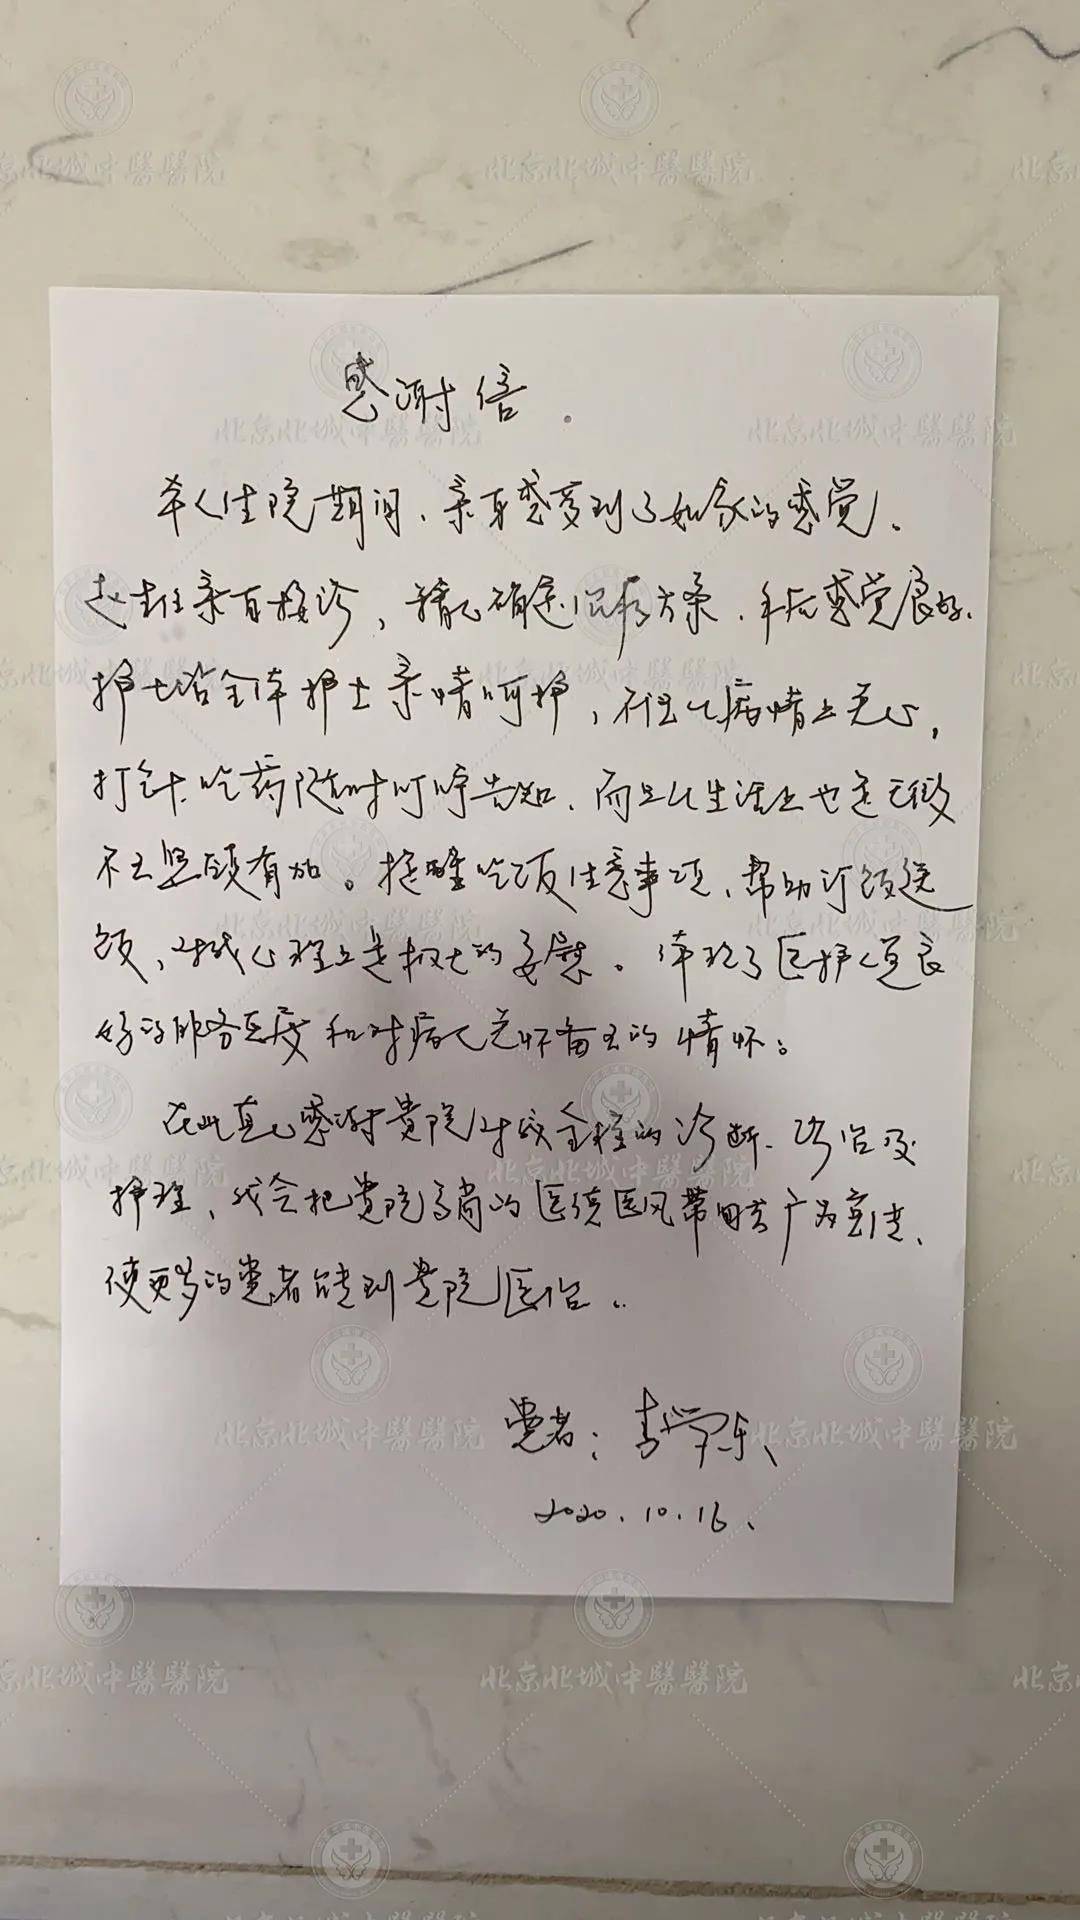 感谢信
本人住院期间、亲身感受到了如家的感觉。
赵主任亲自接诊，精心确定医疗方案、术后感觉良好、
护士站全体护士亲情呵护，不但从病情上关心，
打针、吃药随时叮咛告知、而且从生活上也是无微
不至照顾有加。提醒吃饭注意事项、帮助订饭送
饭、对我心理上是极大的安慰。体现了医护人员良
好的服务态度和对病人关怀备至的情怀。
在此真心感谢贵院对我全程的诊断、诊治及
护理、我会把贵院高尚的医德医风带回去广为宣传、
使更多的患者能到贵院医治。
患者：李学乐
2020.10.16、
北京北城中醫醫院